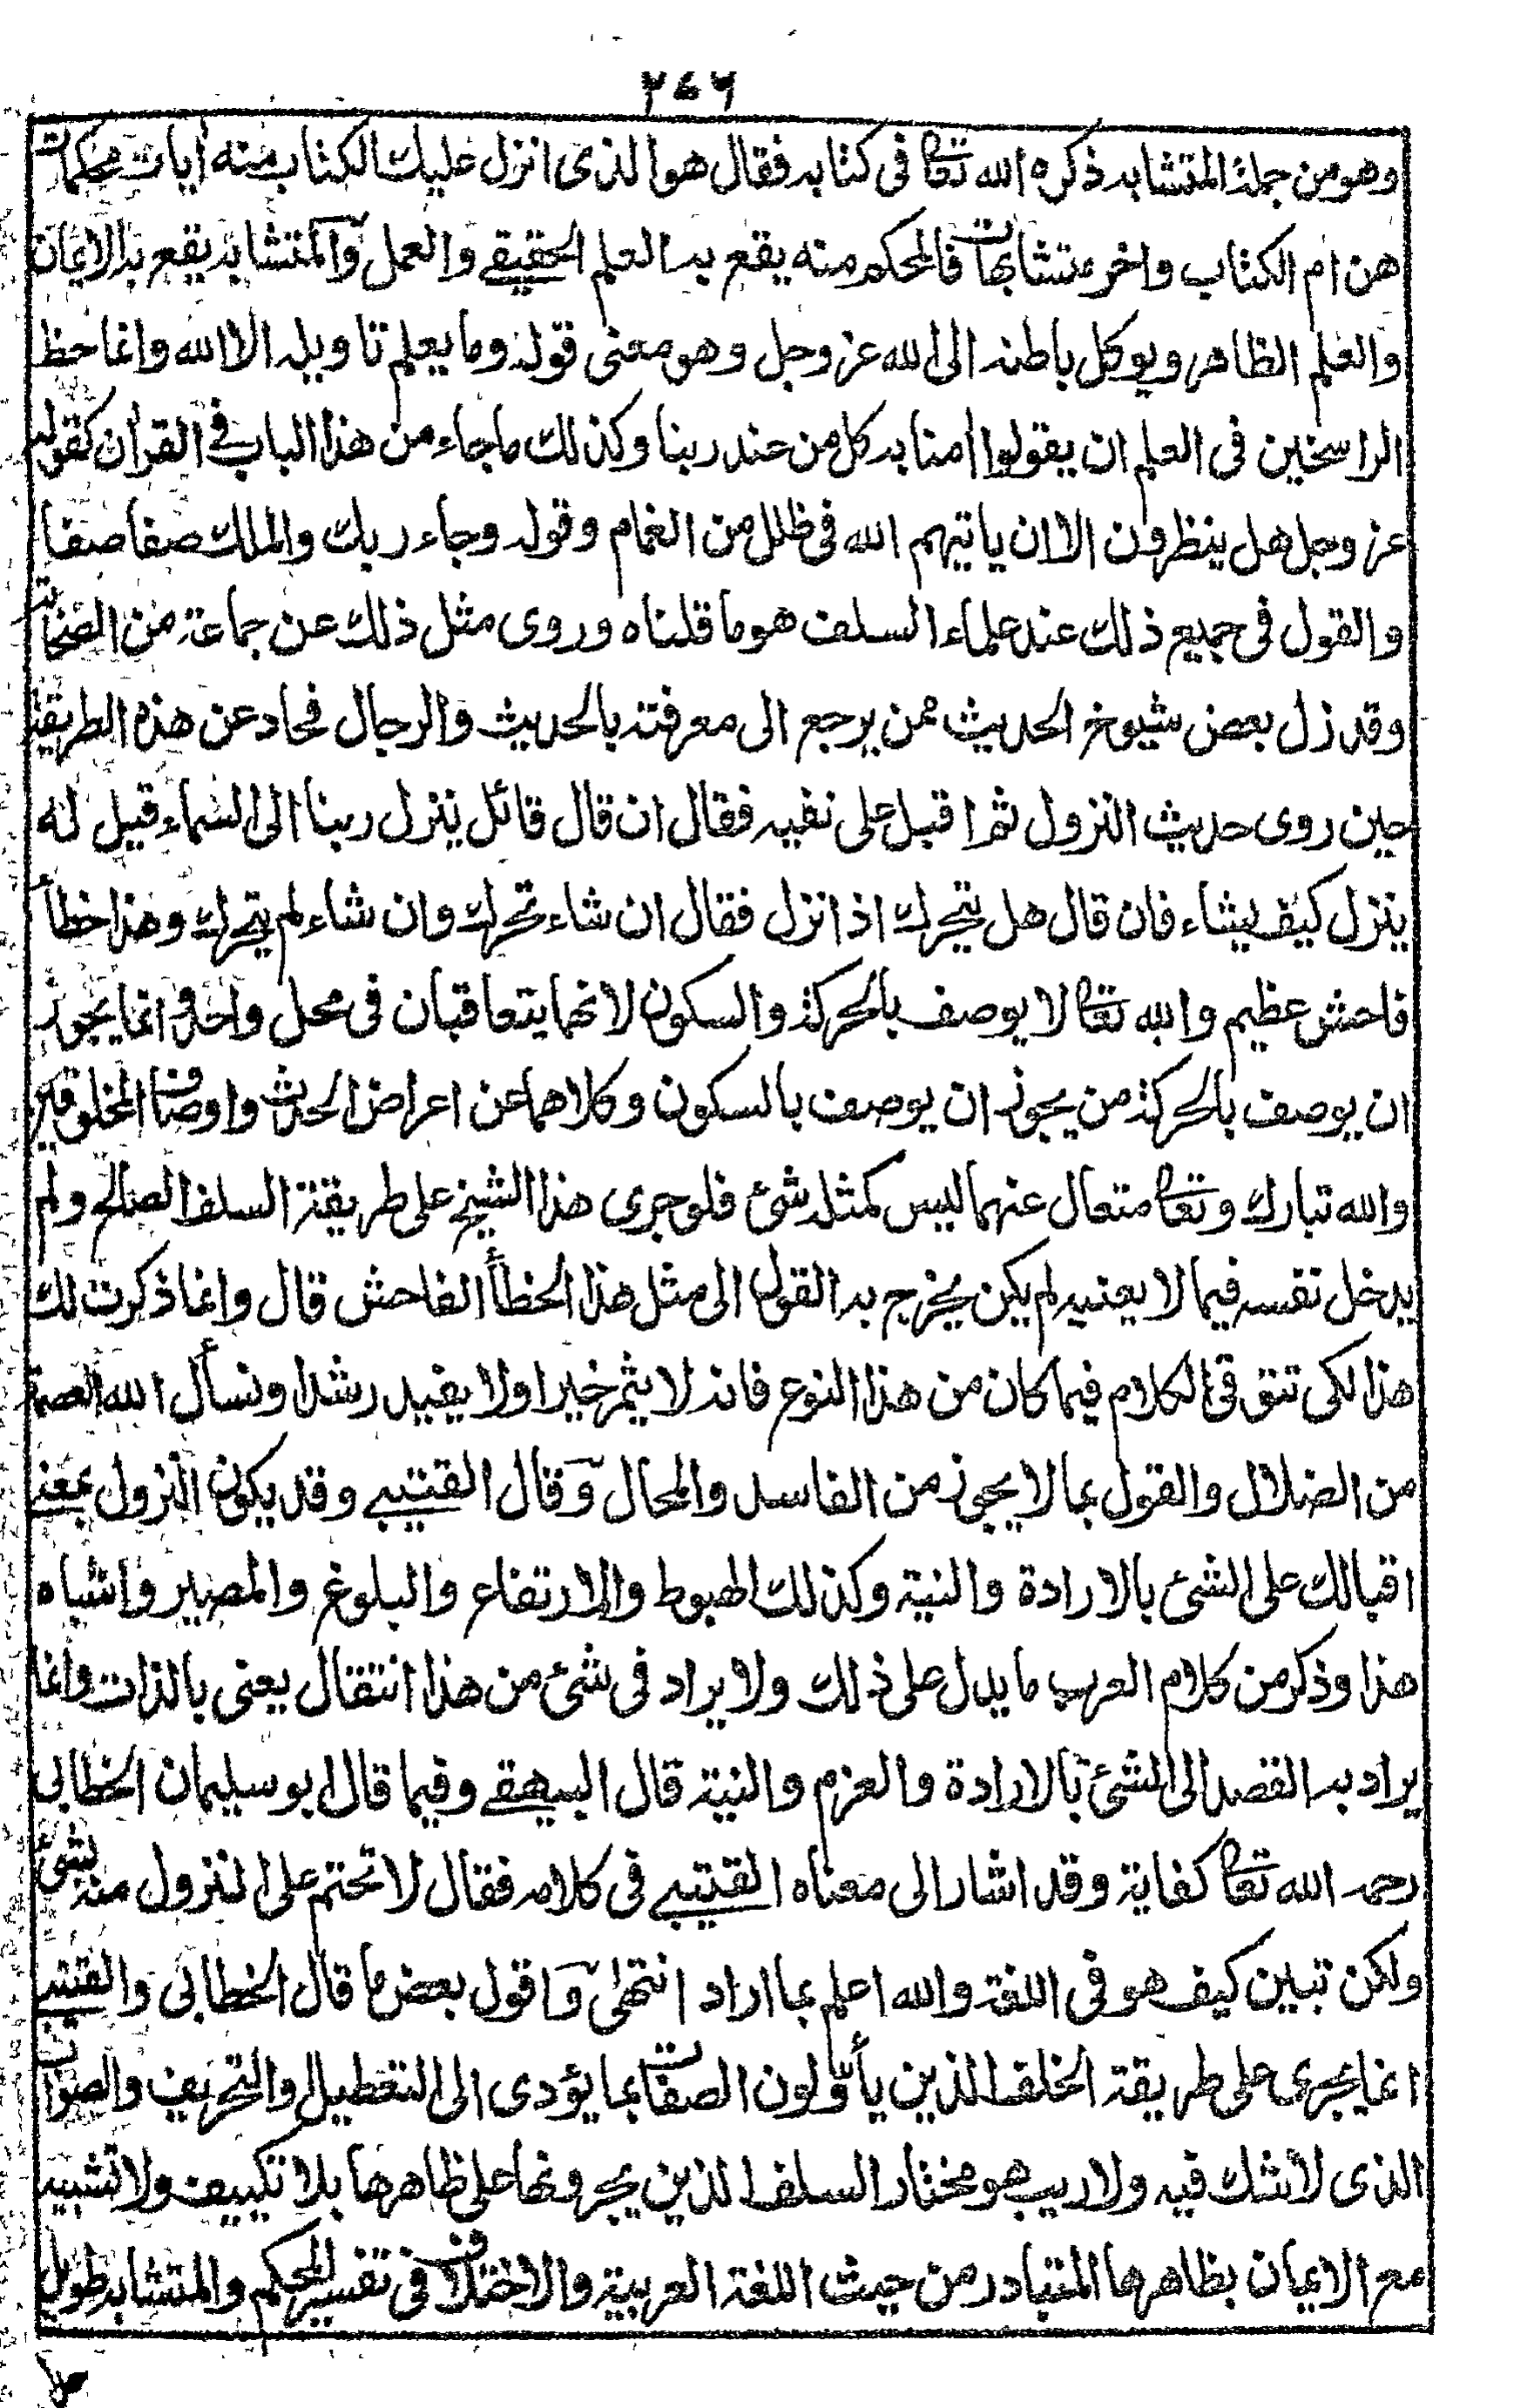 ۲۶۶
وهو من جملة المتشابه ذكره الله تعا فى كتابه فقال هو الذى انزل عليك الكتاب منه ايات محكمات
هن ام الكتاب واخر متشابهات فالمحكم منه يقع به العلم الحقيقے والعمل والمتشابه يقع به الايمان
والعلم الظاهر ويوكل باطنه الى الله عز وجل وهو معنى قوله وما يعلم تاويله الا الله وانما حظ
الراسخين فى العلم ان يقولوا امنا به كل من عند ربنا وكذلك ما جاء من هذا الباب فے القران كقوله
عز وجل هل ينظرون الا ان ياتيهم الله فى ظلل من الغمام وقوله وجاء ربك والملك صفا صفا
والقول فى جميع ذلك عند علماء السلف هو ما قلناه وروى مثل ذلك عن جماعة من الصحابة
وقد زل بعض شيوخ الحديث ممن يرجع الى معرفته بالحديث والرجال فحاد عن هذه الطريقة
حين روى حديث النزول ثم اقبل على نفسه فقال ان قال قائل ينزل ربنا الى السماء قيل له
ينزل كيف يشاء فان قال هل يتحرك اذا نزل فقال ان شاء تحرك وان شاء لم يتحرك وهذا خطأ
فاحش عظيم والله تعا لا يوصف بالحركة والسكون لانهما يتعاقبان فى محل واحد انما يجوز
ان يوصف بالحركة من يجوز ان يوصف بالسكون وكلاهما عن اعراض الحدث واوصاف المخلوقين
والله تبارك وتعا متعال عنهما ليس كمثله شئ فلو جرى هذا الشيخ على طريقة السلف الصالح ولم
يدخل نفسه فيما لا يعنيه لم يكن يخرج به القول الى مثل هذا الخطأ الفاحش قال وانما ذكرت لك
هذا لكى تتوقى الكلام فيما كان من هذا النوع فانه لا يثمر خيرا ولا يفيد رشدا ونسأل الله العصمة
من الضلال والقول بما لا يجوز من الفاسد والمحال وقال القتيبے وقد يكون النزول بمعنے
اقبالك على الشئ بالارادة والنية وكذلك الهبوط والارتفاع والبلوغ والمصير واشباه
هذا وذكر من كلام العرب ما يدل على ذلك ولا يراد فى شئ من هذا انتقال يعنى بالذات وانما
يراد به القصد الى الشئ بالارادة والعزم والنية قال البيهقے وفيما قال ابو سليمان الخطابى
رحمه الله تعا كفاية وقد اشار الى معناه القتيبے فى كلامه فقال لا تحتم على النزول منه بشئ
ولكن تبين كيف هو فى اللغة والله اعلم بما اراد انتهى واقول بعض ما قال الخطابى والقتيبے
انما يجرى على طريقة الخلف الذين يأوّلون الصفات بما يؤدى الى التعطيل والتحريف والصواب
الذى لا شك فيه ولا ريب هو مختار السلف الذين يجرونها على ظاهرها بلا تكييف ولا تشبيه
مع الايمان بظاهرها المتبادر من حيث اللغة العربية والاختلاف فى تفسير المحكم والمتشابه طويل